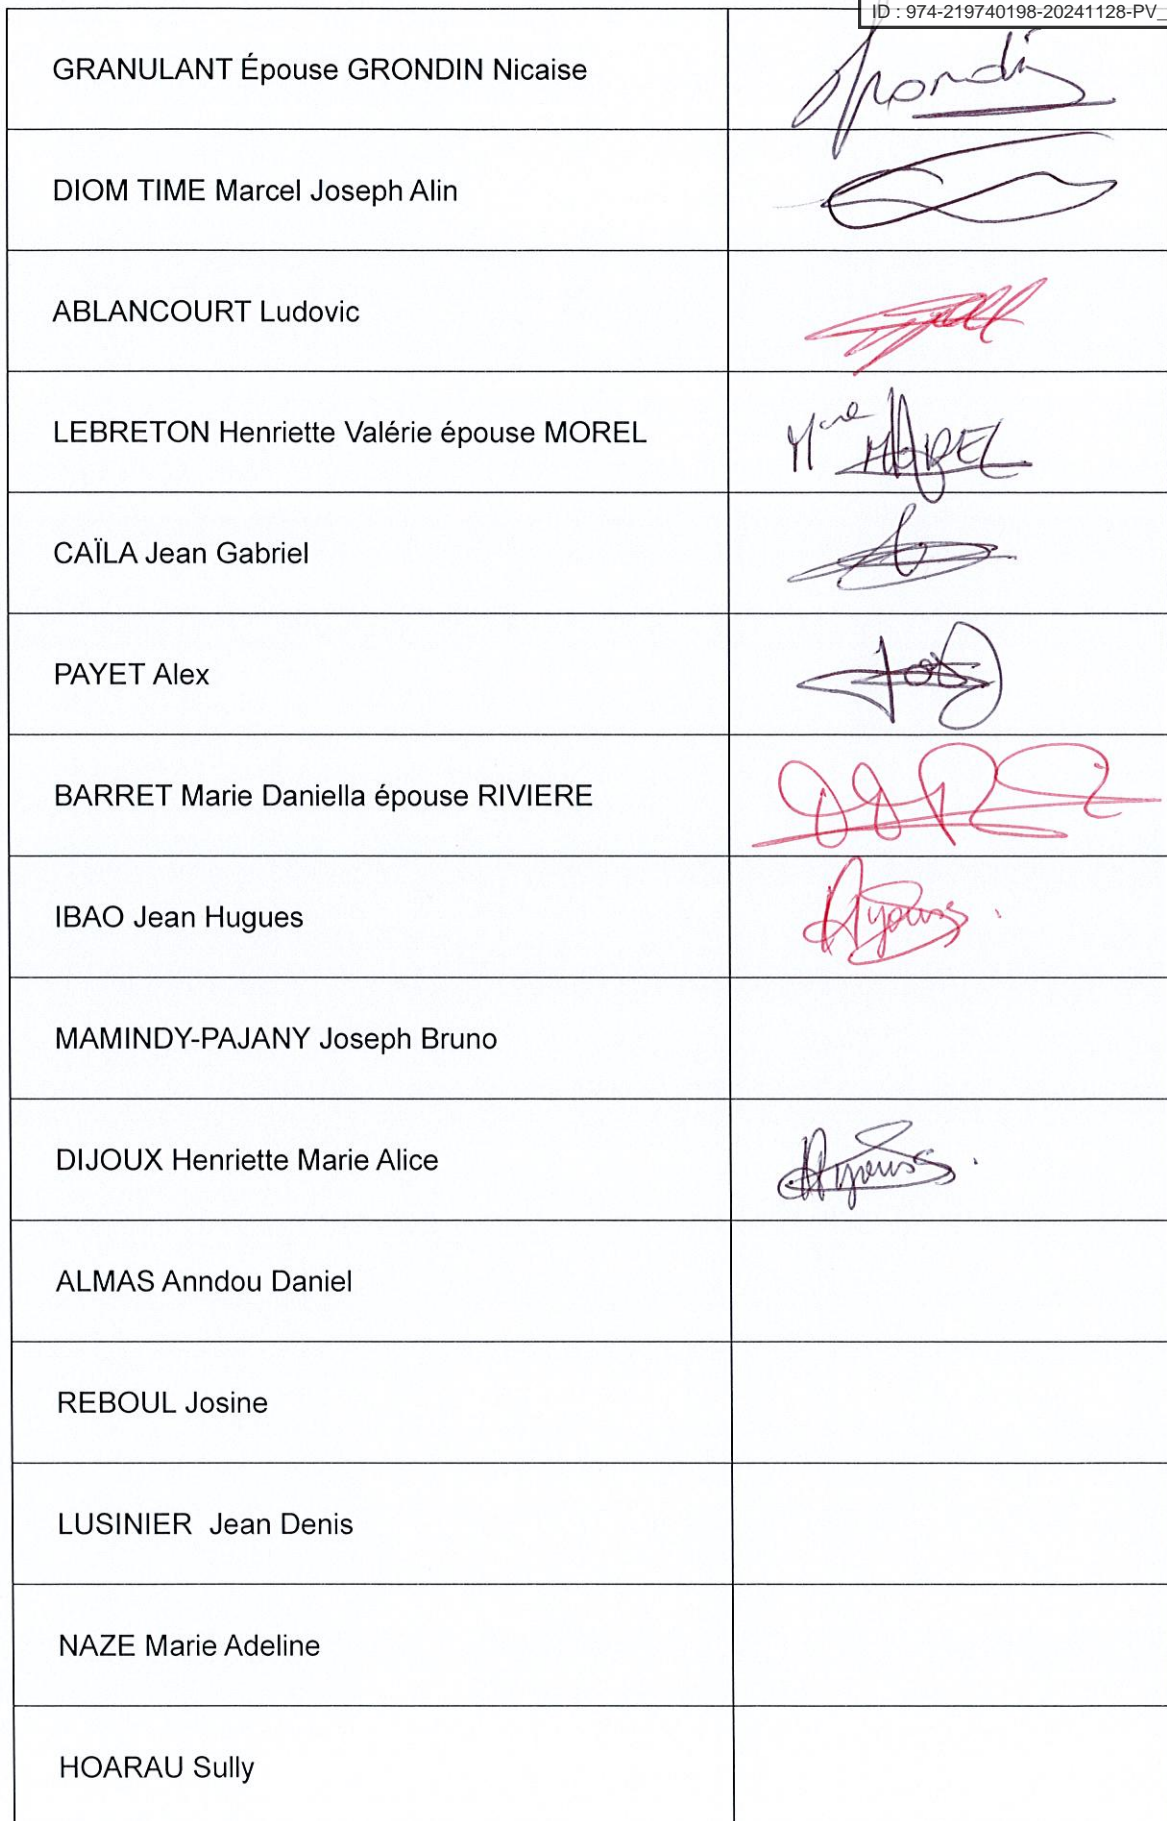 ID : 974-219740198-20241128-PV_
GRANULANT Épouse GRONDIN Nicaise
Grondin
DIOM TIME Marcel Joseph Alin
ABLANCOURT Ludovic
LEBRETON Henriette Valérie épouse MOREL
Mme MOREL
CAÏLA Jean Gabriel
PAYET Alex
BARRET Marie Daniella épouse RIVIERE
IBAO Jean Hugues
MAMINDY-PAJANY Joseph Bruno
DIJOUX Henriette Marie Alice
ALMAS Anndou Daniel
REBOUL Josine
LUSINIER Jean Denis
NAZE Marie Adeline
HOARAU Sully